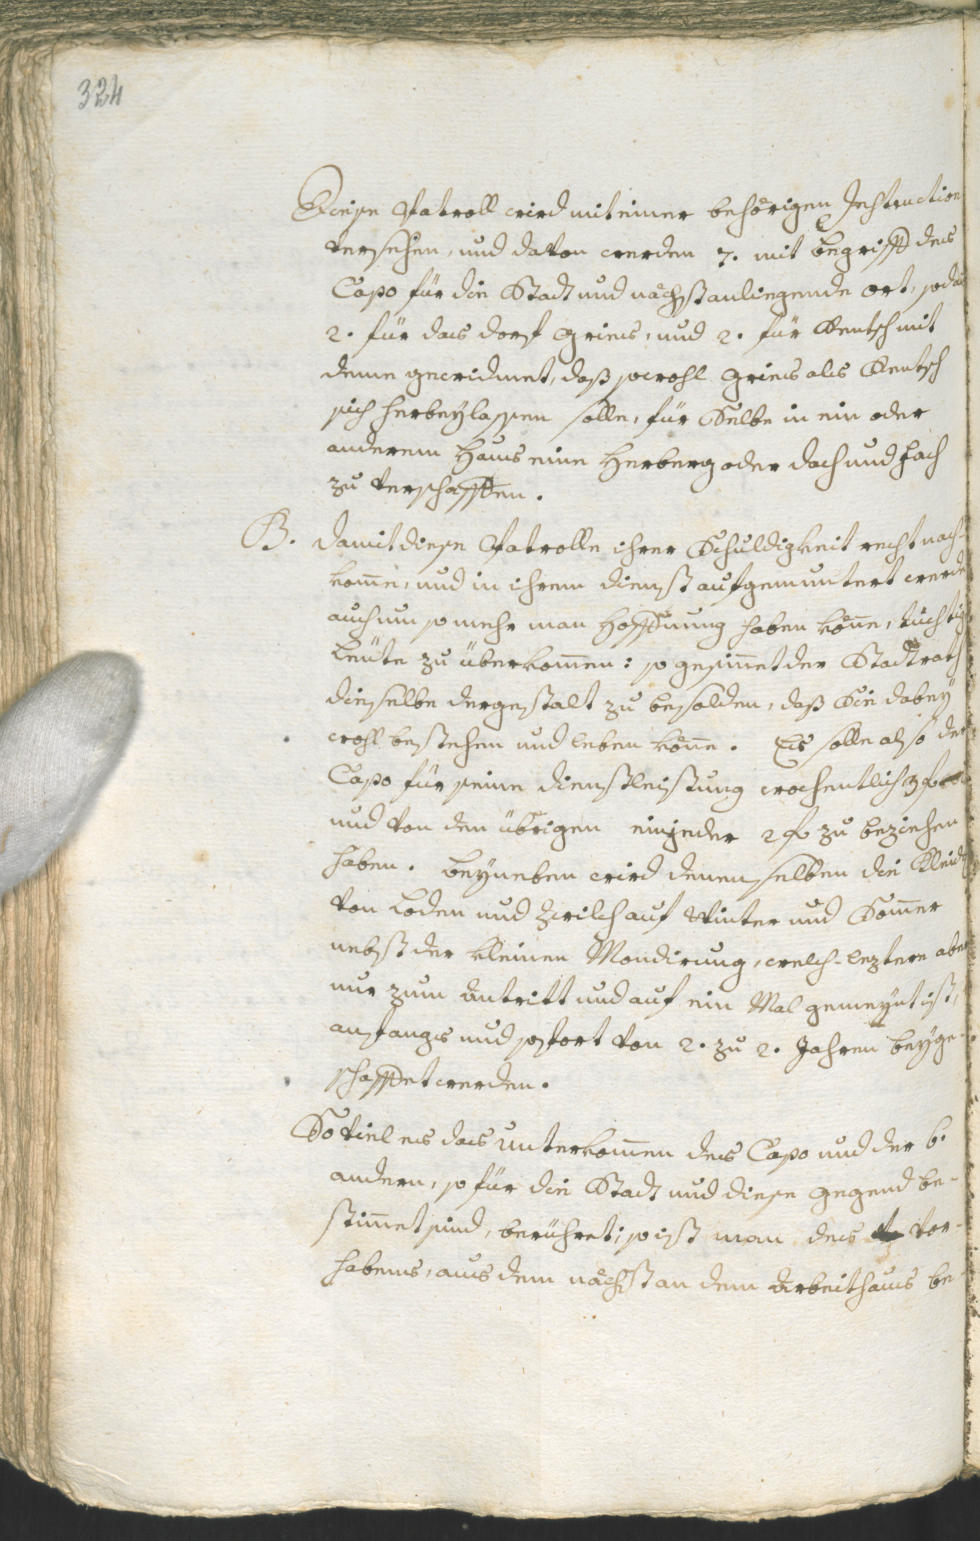 324
Diese Patroll wird mit einer behörigen Instruction
versehen, und davon werden 7. mit Begriff des
Capo für die Stadt und nächstanliegende Ort, sodan
2. für das dorf Gries, und 2. für Rentsch mit
deme gewidmet, daß sowohl Gries als Rentsch
sich herbeylassen solle, für Selbe in ein oder
anderem Haus eine Herberg oder dach und fach
zu verschaffen.
B. damit diese Patrolle ihrer Schuldigkeit recht nach-
kome, und in ihrem dienst aufgemuntert werde
auch um so mehr man Hoffnung haben köne, tüchtige
Leüte zu überkomen: so gesinnet der Stadtrath
dieselbe dergestalt zu besolden, daß Sie dabey
wohl bestehen und leben köne. Es solle also der
Capo für seine dienstleistung wochentlich 3 f
und von den übrigen ein jeder 2 f zu beziehen
haben. beyneben wird denenselben die Kleidg
von Loden und Zwilch auf Winter und Somer
nebst der kleinen Mondirung, welch-leztere aber
nur zum Antritt und auf ein Mal gemeynt ist,
anfangs und sofort von 2. zu 2. Jahren beyge-
schaffet werden.
So viel es das unterkomen des Capo und der 6.
andern, so für die Stadt und diese gegend be-
stimet sind, berühret; so ist man des vor-
habens, aus dem nächst an dem Arbeitshaus be-